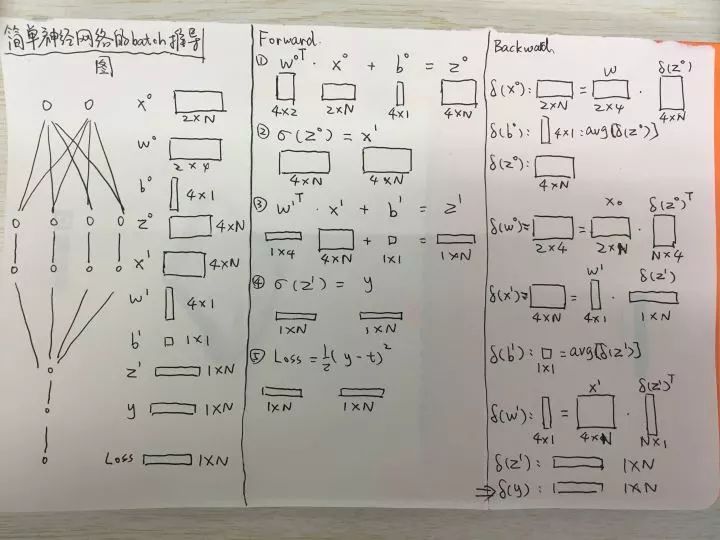 简单神经网络的batch推导
图
x⁰ 2×N
w⁰ 2×4
b⁰ 4×1
z⁰ 4×N
x¹ 4×N
w¹ 4×1
b¹ 1×1
z¹ 1×N
y 1×N
Loss 1×N
Forward.
① w⁰ᵀ · x⁰ + b⁰ = z⁰
4×2 2×N 4×1 4×N
② σ(z⁰) = x¹
4×N 4×N
③ w¹ᵀ · x¹ + b¹ = z¹
+ =
1×4 4×N 1×1 1×N
④ σ(z¹) = y
1×N 1×N
⑤ Loss = ½(y-t)²
1×N 1×N
Backward.
w δ(z⁰)
δ(x⁰): = ·
2×N 2×4 4×N
δ(b⁰): 4×1 : avg[δ(z⁰)]
δ(z⁰):
4×N
x₀ δ(z⁰)ᵀ
δ(w⁰)= = ·
2×4 2×N N×4
w¹ δ(z¹)
δ(x¹)= = ·
4×N 4×1 1×N
δ(b¹): = avg[δ(z¹)]
1×1
x¹ δ(z¹)ᵀ
δ(w¹): = ·
4×1 4×N N×1
δ(z¹): 1×N
⇒ δ(y): 1×N